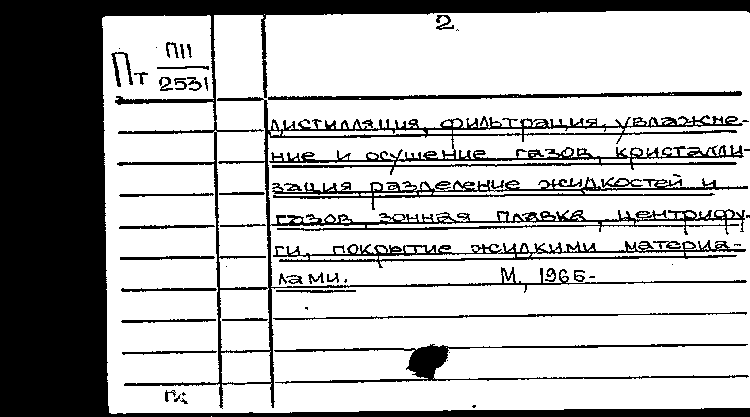 2
Пт ПII
2531
дистилляция, фильтрация, увлажне-
ние и осушение газов, кристалли-
зация, разделение жидкостей и
газов, зонная плавка, центрифу-
ги, покрытие жидкими материа-
лами. М., 1965-